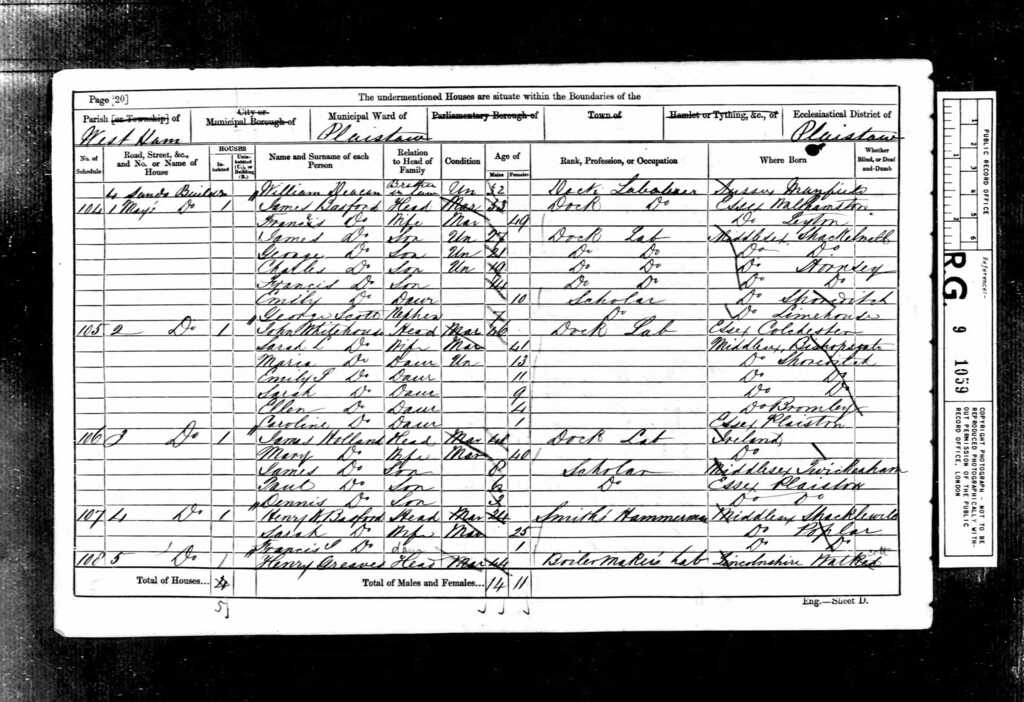 Page 20]
The undermentioned Houses are situate within the Boundaries of the
Parish [or Township] of West Ham
City or Municipal Borough of
Municipal Ward of Plaistow
Parliamentary Borough of
Town of
Hamlet or Tything, &c., of
Ecclesiastical District of Plaistow
No. of Schedule
Road, Street, &c., and No. or Name of House
HOUSES
Inhabited
Uninhabited (U.), or Building (B.)
Name and Surname of each Person
Relation to Head of Family
Condition
Age of
Males
Females
Rank, Profession, or Occupation
Where Born
Whether Blind, or Deaf-and-Dumb
4 Sands William Deacan Brother in Un 32 Dock Labourer Sussex
104 1 May's Do 1 James Basford Head Mar 53 Dock Do Essex Walthamstow
Frances Do Wife Mar 49 Do Leyton
James Do Son Un Dock Lab Middlesex Shackelwell
George Do Son Un 21 Do Do Do Do
Charles Do Son Un 19 Do Do Do Hornsey
Francis Do Son 14 Do Do Do Do
Emily Do Daur 10 Scholar Do Shoreditch
George Scott Nephew 7 Do Do Limehouse
105 2 Do 1 John Whitehouse Head Mar 46 Dock Lab Essex Colchester
Sarah Do Wife Mar 41 Middlesex Bishopsgate
Maria Do Daur Un 13 Do Shoreditch
Emily Do Daur 11 Do Do
Sarah Do Daur 9 Do Do
Ellen Do Daur 4 Do Bromley
Caroline Do Daur 1 Essex Plaistow
106 3 Do 1 James Holland Head Mar Dock Lab Ireland
Mary Do Wife Mar 40 Do
James Do Son 8 Scholar Middlesex Twickenham
Paul Do Son 6 Do Essex Plaistow
Dennis Do Son 2 Do Do
107 4 Do 1 Henry W Basford Head Mar 24 Smith's Hammerman Middlesex Shacklewell
Sarah Do Wife Mar 25 Do Poplar
Francis S Do Daur 1 Do Do
108 5 Do 1 Henry Greaves Head Mar 44 Boiler Maker's Lab Lincolnshire
Total of Houses... 4
Total of Males and Females... 14 11
5
Eng.—Sheet D.
PUBLIC RECORD OFFICE
Reference:-
RG. 9 1059
COPYRIGHT PHOTOGRAPH - NOT TO BE REPRODUCED PHOTOGRAPHICALLY WITHOUT PERMISSION OF THE PUBLIC RECORD OFFICE, LONDON